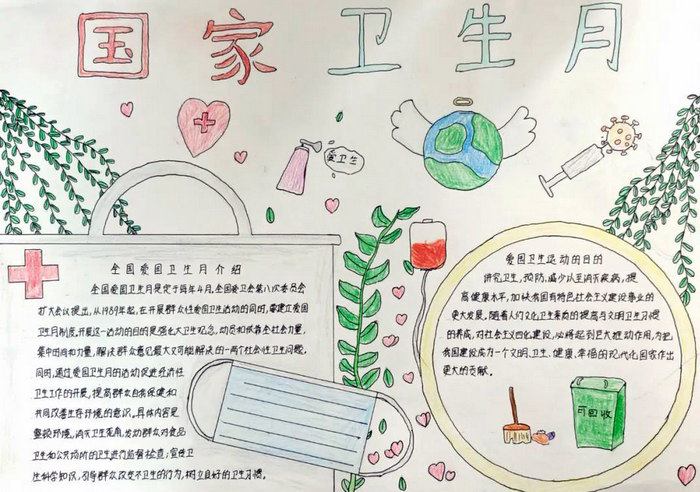 国家卫生月
爱卫生
全国爱国卫生月介绍
全国爱国卫生月是定于每年4月,全国爱卫会第八次委员会
扩大会议提出,从1989年起,在开展群众性爱国卫生活动的同时,要建立爱国
卫生月制度,开展这一活动的目的是强化大卫生观念,动员和依靠全社会力量,
集中时间和力量,解决群众意见最大又可能解决的一两个社会性卫生问题。
同时,通过爱国卫生月的活动促进经济性
卫生工作的开展,提高群众自我保健和
共同改善生存环境的意识。具体内容是
整顿环境,消灭卫生死角,发动群众对食品
卫生和公共场所的卫生进行监督检查;宣传卫
生科学知识,引导群众改变不卫生的行为,树立良好的卫生习惯。
爱国卫生运动的目的
讲究卫生,预防,减少以至消灭疾病,提
高健康水平,加快我国有特色社会主义建设事业的
更大发展,随着人们文化卫生素质的提高与文明卫生习惯
的养成,对社会主义四化建设,必将起到巨大推动作用,为把
我国建设成为一个文明、卫生、健康、幸福的现代化国家作出
更大的贡献。
可回收